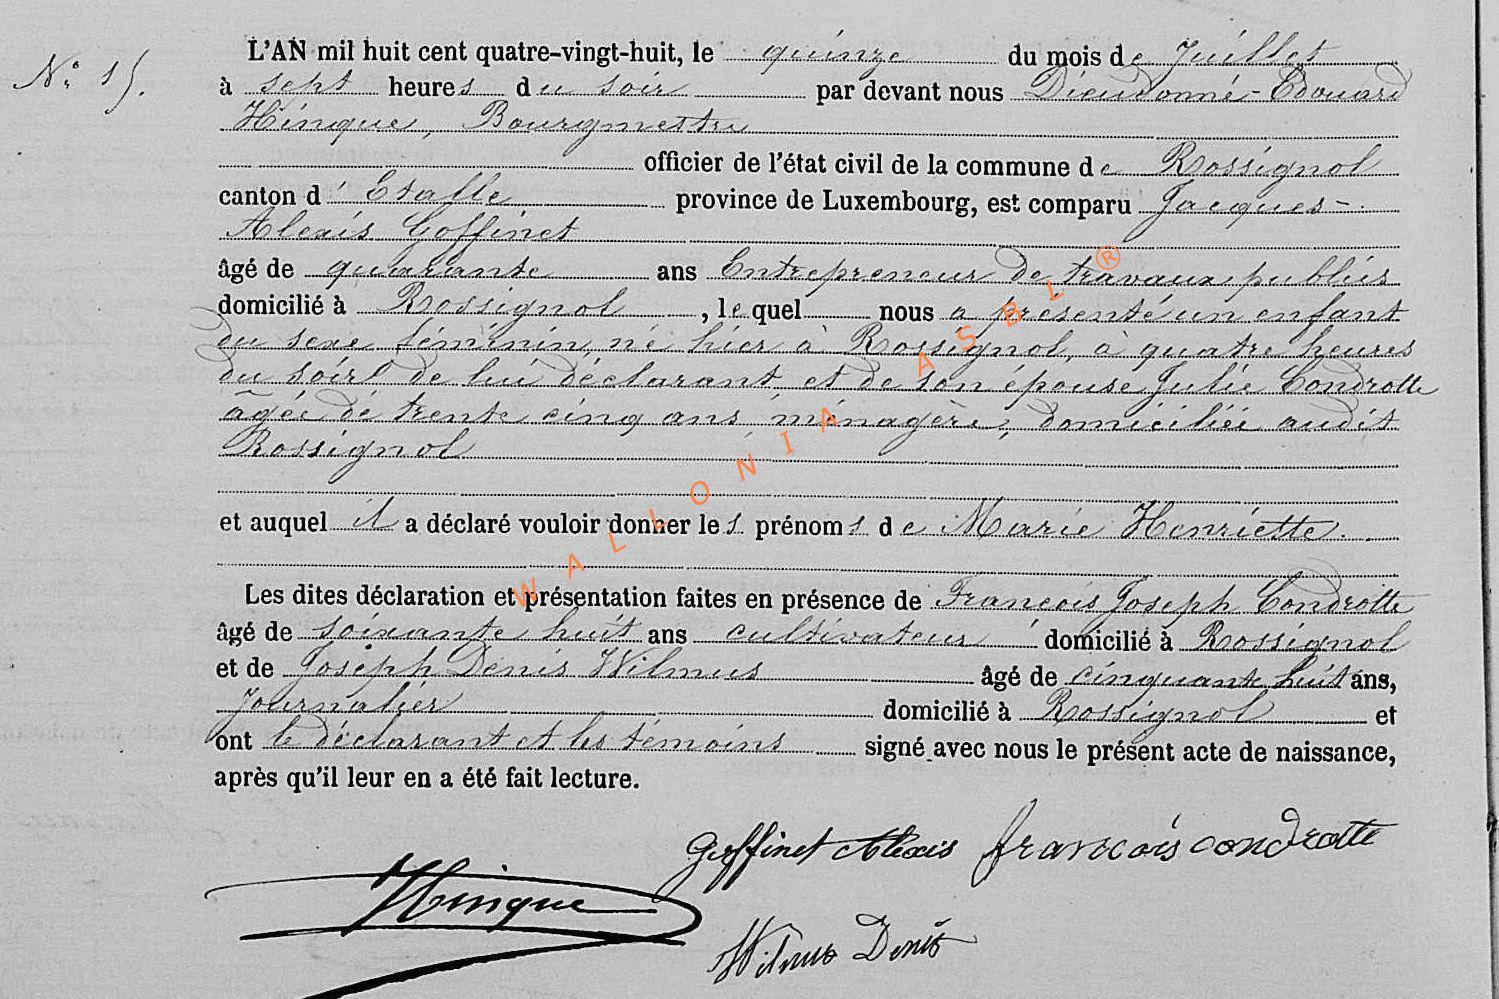 N° 15.
L'AN mil huit cent quatre-vingt-huit, le quinze du mois de Juillet
à sept heures du soir par devant nous Dieudonné-Edouard
Hinque, Bourgmestre
officier de l'état civil de la commune de Rossignol
canton d'Etalle province de Luxembourg, est comparu Jacques-
Alexis Goffinet
âgé de quarante ans Entrepreneur de travaux publics
domicilié à Rossignol, le quel nous a présenté un enfant
du sexe féminin, né hier à Rossignol, à quatre heures
du soir de lui déclarant et de son épouse Julie Condrotte
âgée de trente cinq ans, ménagère, domiciliée audit
Rossignol
et auquel il a déclaré vouloir donner les prénoms de Marie Henriette.
Les dites déclaration et présentation faites en présence de François Joseph Condrotte
âgé de soixante huit ans cultivateur domicilié à Rossignol
et de Joseph Denis Wilmus âgé de cinquante huit ans,
Journalier domicilié à Rossignol et
ont le déclarant et les témoins signé avec nous le présent acte de naissance,
après qu'il leur en a été fait lecture.
Goffinet Alexis françois condrotte
Hinque
Wilmus Denis
WALLONIA ASBL ®